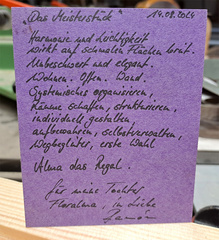 „Das Meisterstück" 14.08.2024
Harmonie und Leichtigkeit
wirkt auf schmalen Flächen breit.
Unbeschwert und elegant.
Wohnen. Offen. Band.
Systemisches organisieren,
Räume schaffen, strukturieren,
individuell gestalten
aufbewahren, selbstverwalten,
Wegbegleiter, erste Wahl
Alma das Regal.
für meine Tochter
Floralma, in Liebe